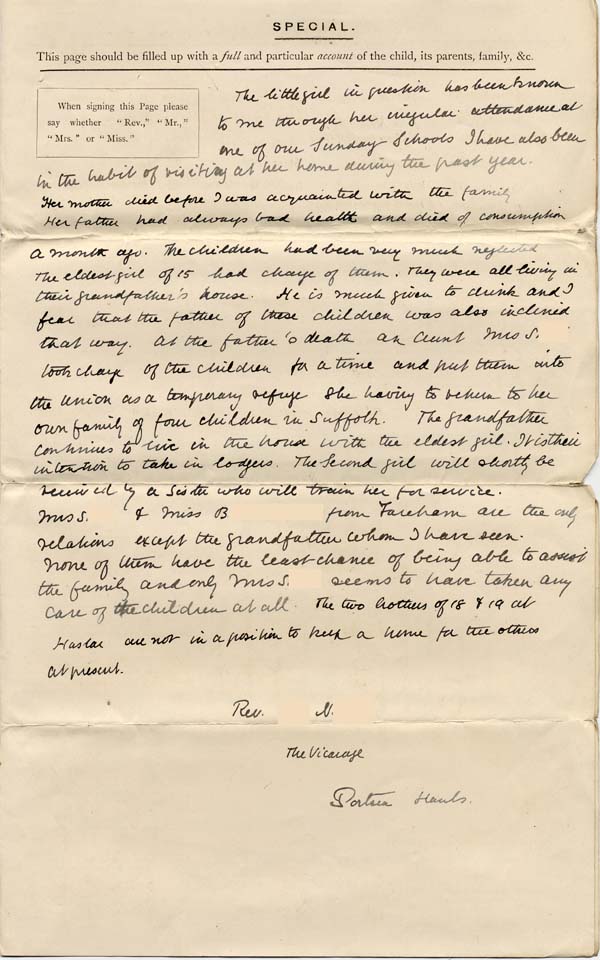 SPECIAL.
This page should be filled up with a full and particular account of the child, its parents, family, &c.
When signing this Page please
say whether "Rev.," "Mr.,"
"Mrs." or "Miss."
The little girl in question has been known
to me through her irregular attendance at
one of our Sunday Schools I have also been
in the habit of visiting at her home during the past year.
Her mother died before I was acquainted with the family
Her father had always bad health and died of consumption
a month ago. The children had been very much neglected
The eldest girl of 15 had charge of them. They were all living in
their grandfather's house. He is much given to drink and I
fear that the father of these children was also inclined
that way. At the father's death an aunt Mrs S.
took charge of the children for a time and put them into
the Union as a temporary refuge She having to return to her
own family of four children in Suffolk. The grandfather
continues to live in the house with the eldest girl. It is their
intention to take in lodgers. The Second girl will shortly be
received by a Sister who will train her for service.
Mrs S. & Miss B from Fareham are the only
relations except the grandfather whom I have seen.
None of them have the least chance of being able to assist
the family and only Mrs S. seems to have taken any
care of the children at all. The two brothers of 18 & 19 at
Haslar are not in a position to keep a home for the others
at present.
Rev. N.
The Vicarage
Portsea Hants.